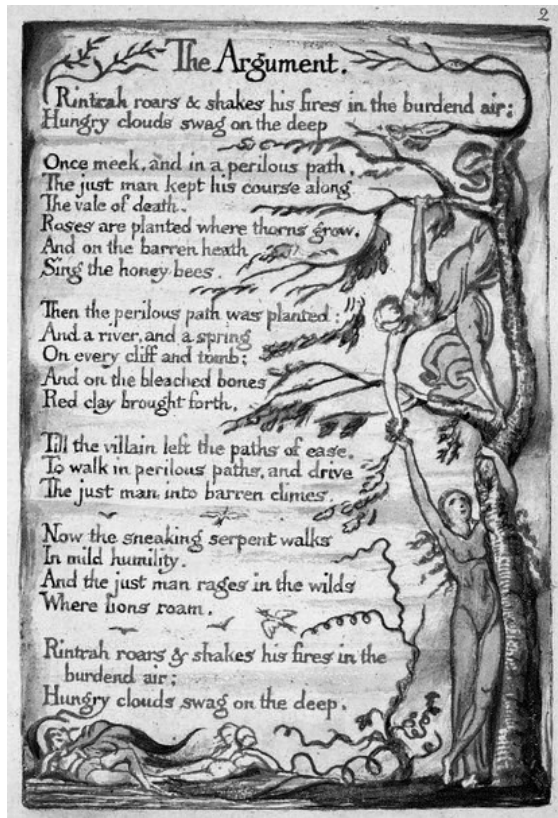 2
The Argument.
Rintrah roars & shakes his fires in the burdend air;
Hungry clouds swag on the deep
Once meek, and in a perilous path,
The just man kept his course along
The vale of death.
Roses are planted where thorns grow.
And on the barren heath
Sing the honey bees.
Then the perilous path was planted:
And a river, and a spring
On every cliff and tomb;
And on the bleached bones
Red clay brought forth.
Till the villain left the paths of ease,
To walk in perilous paths, and drive
The just man into barren climes.
Now the sneaking serpent walks
In mild humility.
And the just man rages in the wilds
Where lions roam.
Rintrah roars & shakes his fires in the
burdend air;
Hungry clouds swag on the deep.